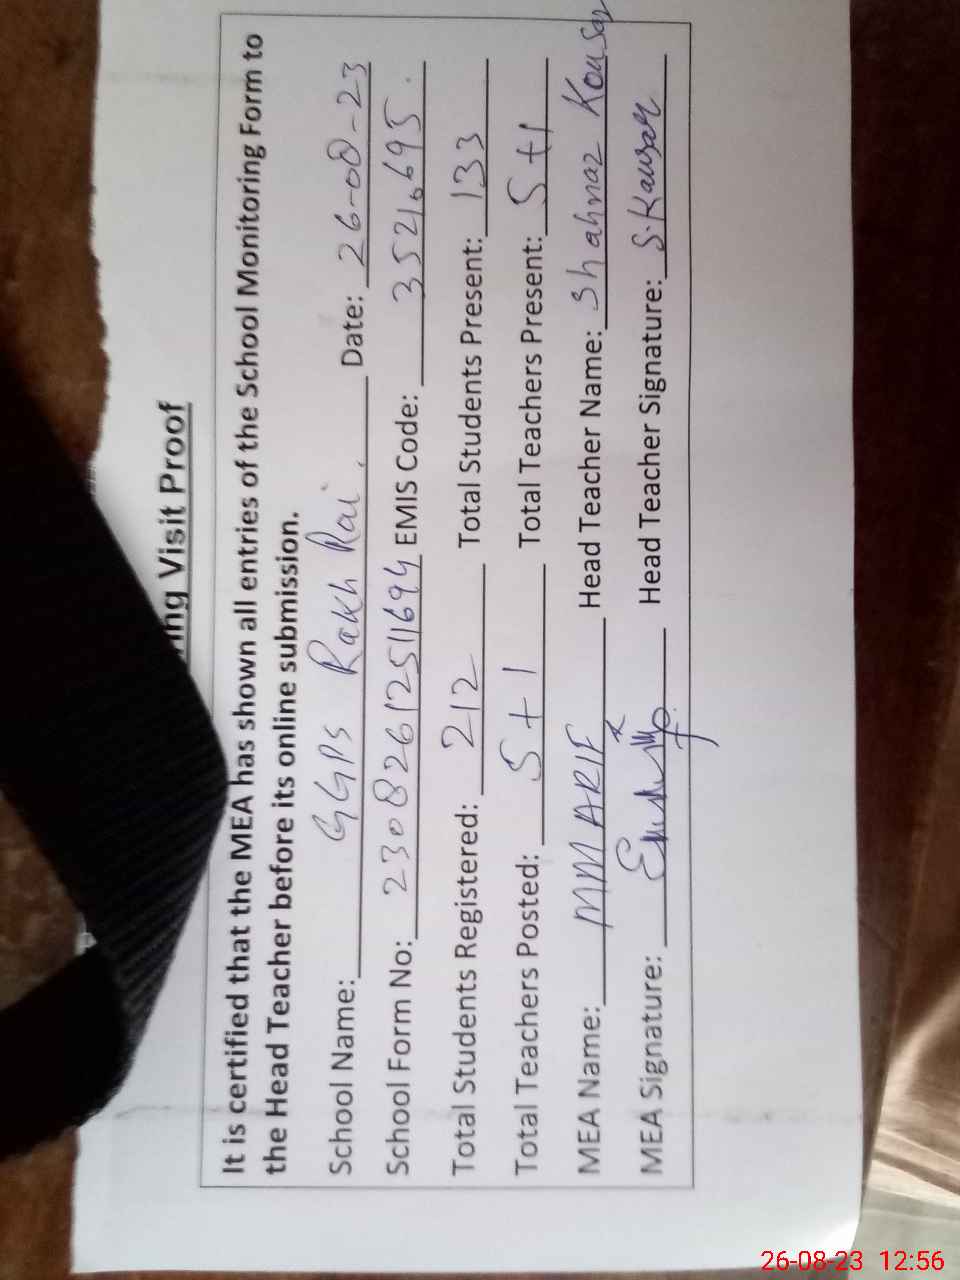 ing Visit Proof
It is certified that the MEA has shown all entries of the School Monitoring Form to
the Head Teacher before its online submission.
School Name: GGPS Rakh Rai. Date: 26-08-23
School Form No: 23082612511694 EMIS Code: 35210695.
Total Students Registered: 212 Total Students Present: 133
Total Teachers Posted: 5+1 Total Teachers Present: 5+1
MEA Name: MM ARIF Head Teacher Name: Shahnaz Kousar
MEA Signature: Head Teacher Signature: S.Kausar
26-08-23 12:56